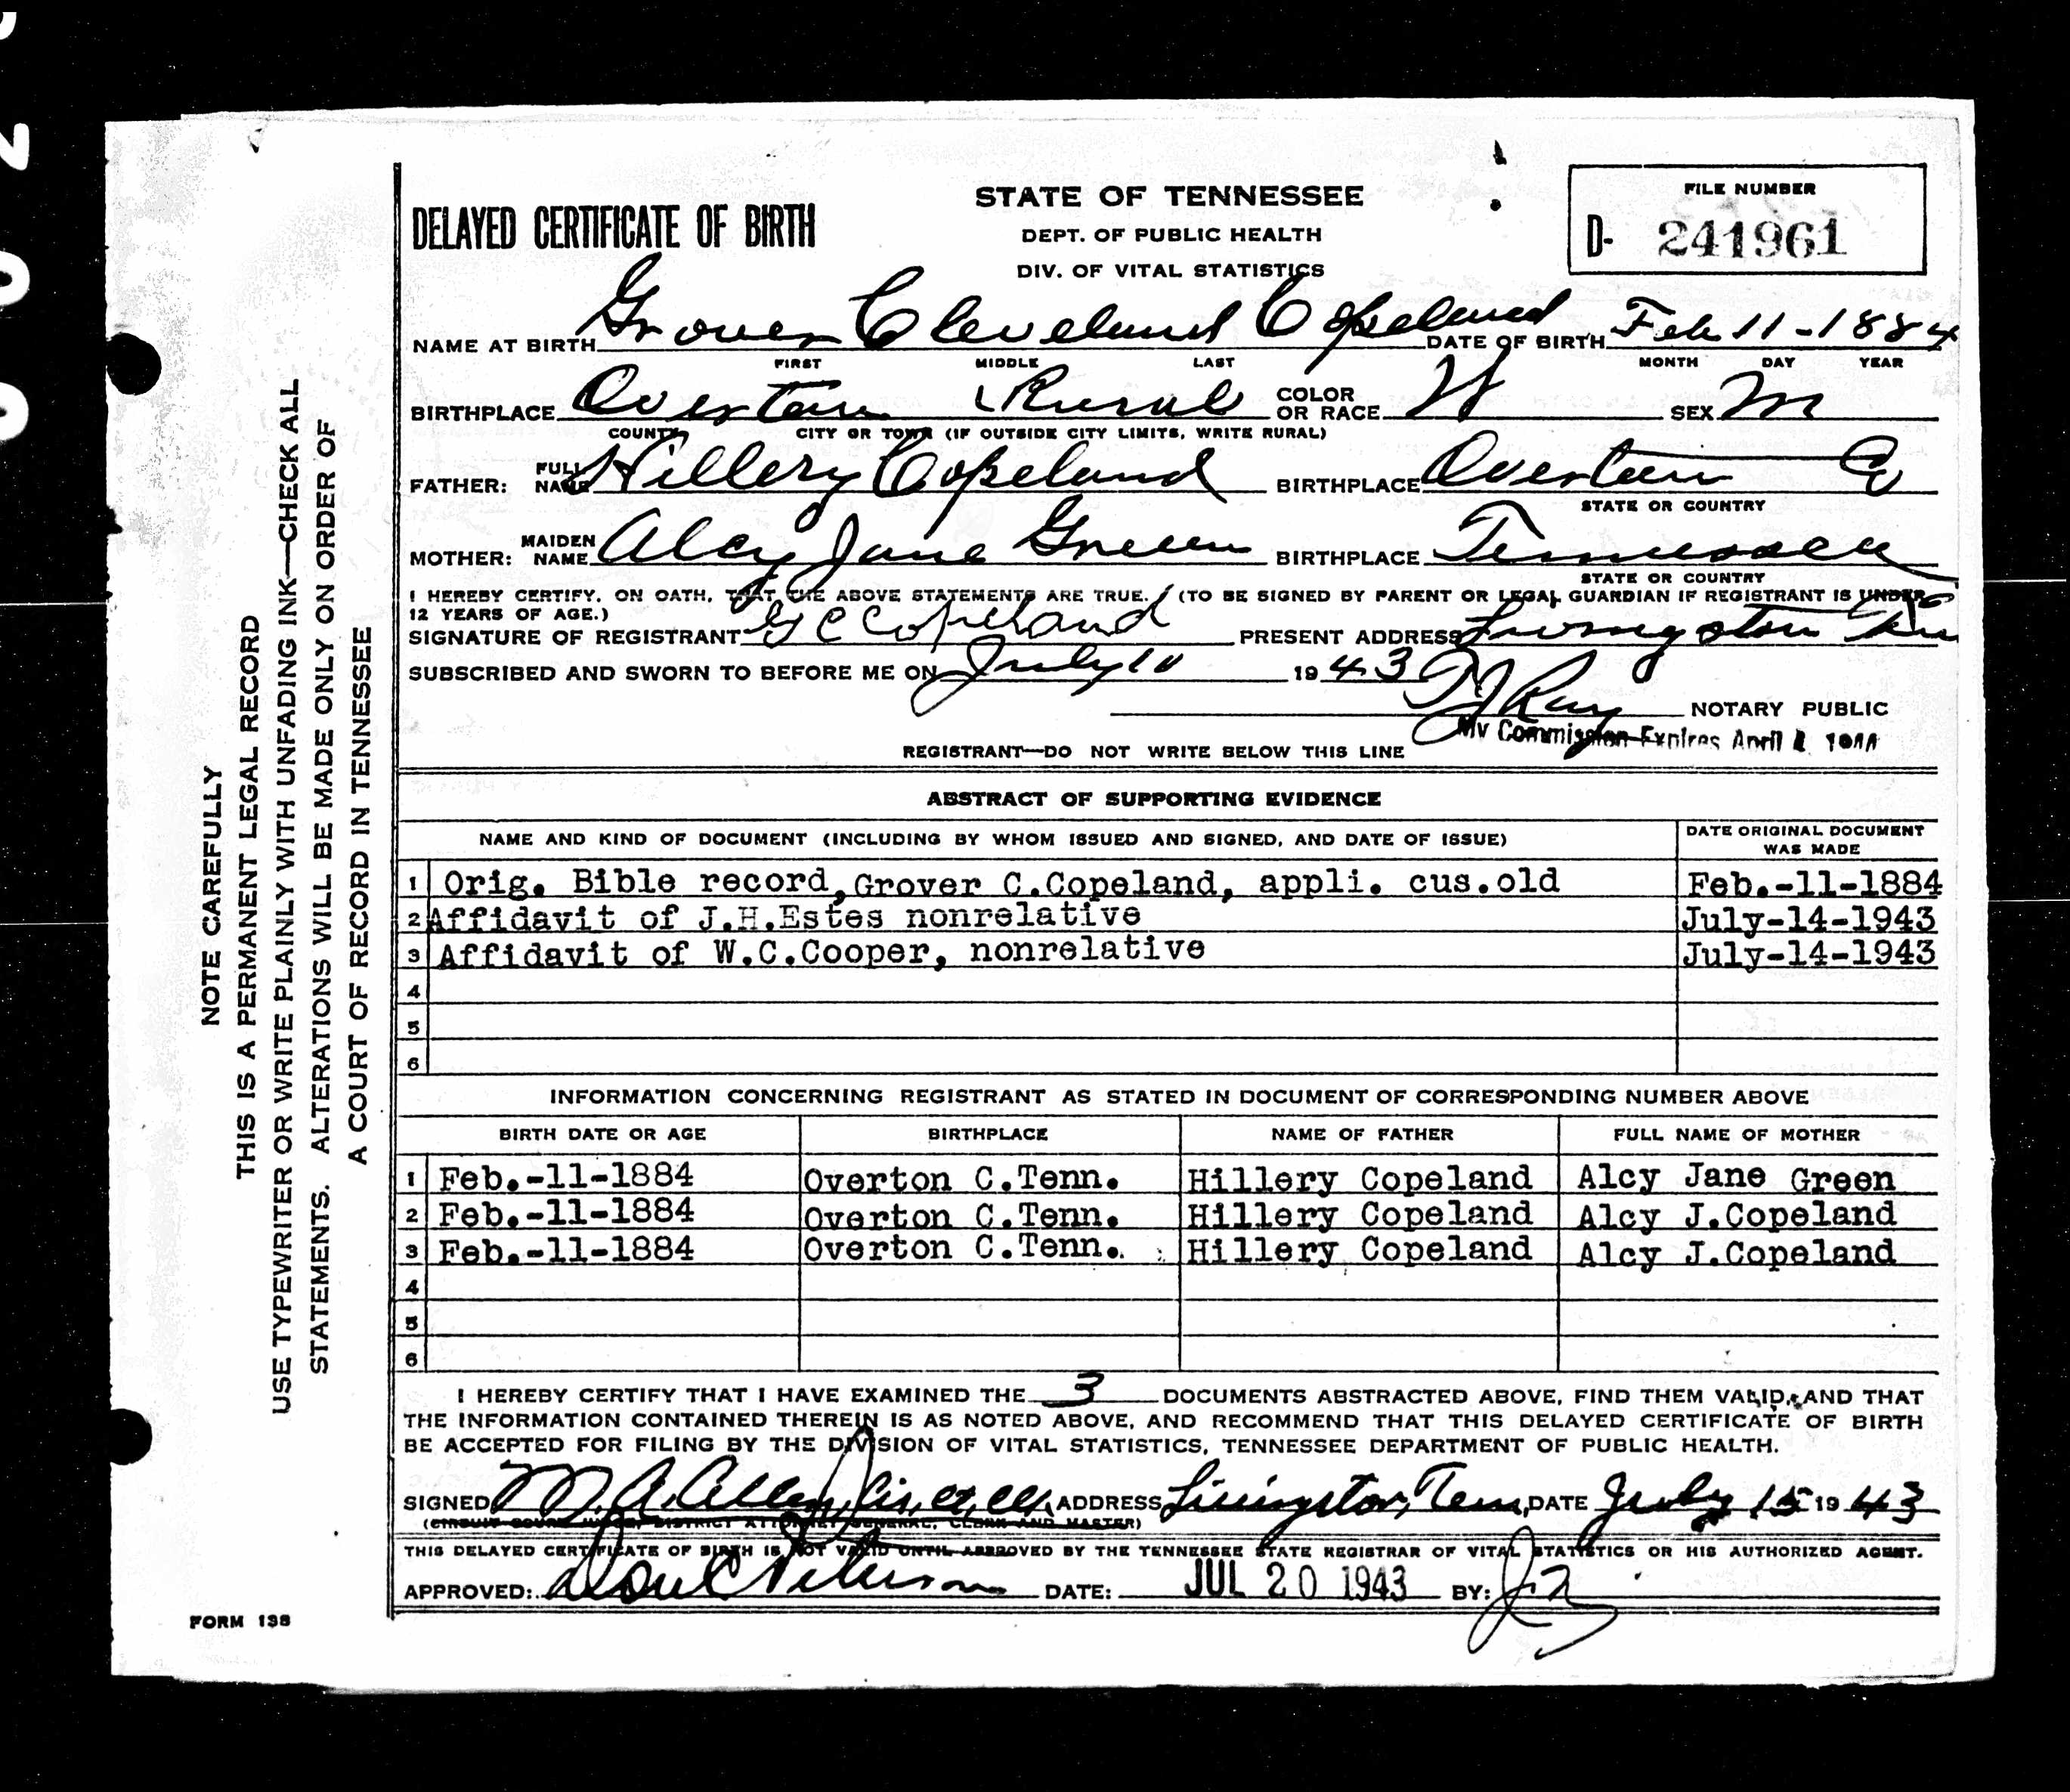 STATE OF TENNESSEE
DEPT. OF PUBLIC HEALTH
DIV. OF VITAL STATISTICS
DELAYED CERTIFICATE OF BIRTH
FILE NUMBER
D- 241961
NAME AT BIRTH Grover Cleveland Copeland DATE OF BIRTH Feb 11-1884
FIRST MIDDLE LAST MONTH DAY YEAR
BIRTHPLACE Overton Rural COLOR OR RACE W SEX M
COUNTY CITY OR TOWN (IF OUTSIDE CITY LIMITS, WRITE RURAL)
FATHER: FULL NAME Hillery Copeland BIRTHPLACE Overton Co
STATE OR COUNTRY
MOTHER: MAIDEN NAME Alcy Jane Green BIRTHPLACE Tennessee
STATE OR COUNTRY
I HEREBY CERTIFY, ON OATH, THAT THE ABOVE STATEMENTS ARE TRUE. (TO BE SIGNED BY PARENT OR LEGAL GUARDIAN IF REGISTRANT IS UNDER
12 YEARS OF AGE.)
SIGNATURE OF REGISTRANT G C Copeland PRESENT ADDRESS Livingston
SUBSCRIBED AND SWORN TO BEFORE ME ON July 10 1943
T J Ray NOTARY PUBLIC
My Commission Expires April
REGISTRANT—DO NOT WRITE BELOW THIS LINE
ABSTRACT OF SUPPORTING EVIDENCE
NAME AND KIND OF DOCUMENT (INCLUDING BY WHOM ISSUED AND SIGNED, AND DATE OF ISSUE) DATE ORIGINAL DOCUMENT WAS MADE
1 Orig. Bible record, Grover C.Copeland, appli. cus.old Feb.-11-1884
2 Affidavit of J.H.Estes nonrelative July-14-1943
3 Affidavit of W.C.Cooper, nonrelative July-14-1943
4
5
6
INFORMATION CONCERNING REGISTRANT AS STATED IN DOCUMENT OF CORRESPONDING NUMBER ABOVE
BIRTH DATE OR AGE BIRTHPLACE NAME OF FATHER FULL NAME OF MOTHER
1 Feb.-11-1884 Overton C.Tenn. Hillery Copeland Alcy Jane Green
2 Feb.-11-1884 Overton C.Tenn. Hillery Copeland Alcy J.Copeland
3 Feb.-11-1884 Overton C.Tenn. Hillery Copeland Alcy J.Copeland
4
5
6
I HEREBY CERTIFY THAT I HAVE EXAMINED THE 3 DOCUMENTS ABSTRACTED ABOVE, FIND THEM VALID, AND THAT
THE INFORMATION CONTAINED THEREIN IS AS NOTED ABOVE, AND RECOMMEND THAT THIS DELAYED CERTIFICATE OF BIRTH
BE ACCEPTED FOR FILING BY THE DIVISION OF VITAL STATISTICS, TENNESSEE DEPARTMENT OF PUBLIC HEALTH.
SIGNED M. A. Allen, Cir. Ct. Clk ADDRESS Livingston, Tenn, DATE July 15 1943
(CIRCUIT COURT JUDGE, DISTRICT ATTORNEY GENERAL, CLERK AND MASTER)
THIS DELAYED CERTIFICATE OF BIRTH IS NOT VALID UNTIL APPROVED BY THE TENNESSEE STATE REGISTRAR OF VITAL STATISTICS OR HIS AUTHORIZED AGENT.
APPROVED: Don C Peterson DATE: JUL 20 1943 BY:
FORM 138
NOTE CAREFULLY
THIS IS A PERMANENT LEGAL RECORD
USE TYPEWRITER OR WRITE PLAINLY WITH UNFADING INK—CHECK ALL
STATEMENTS. ALTERATIONS WILL BE MADE ONLY ON ORDER OF
A COURT OF RECORD IN TENNESSEE